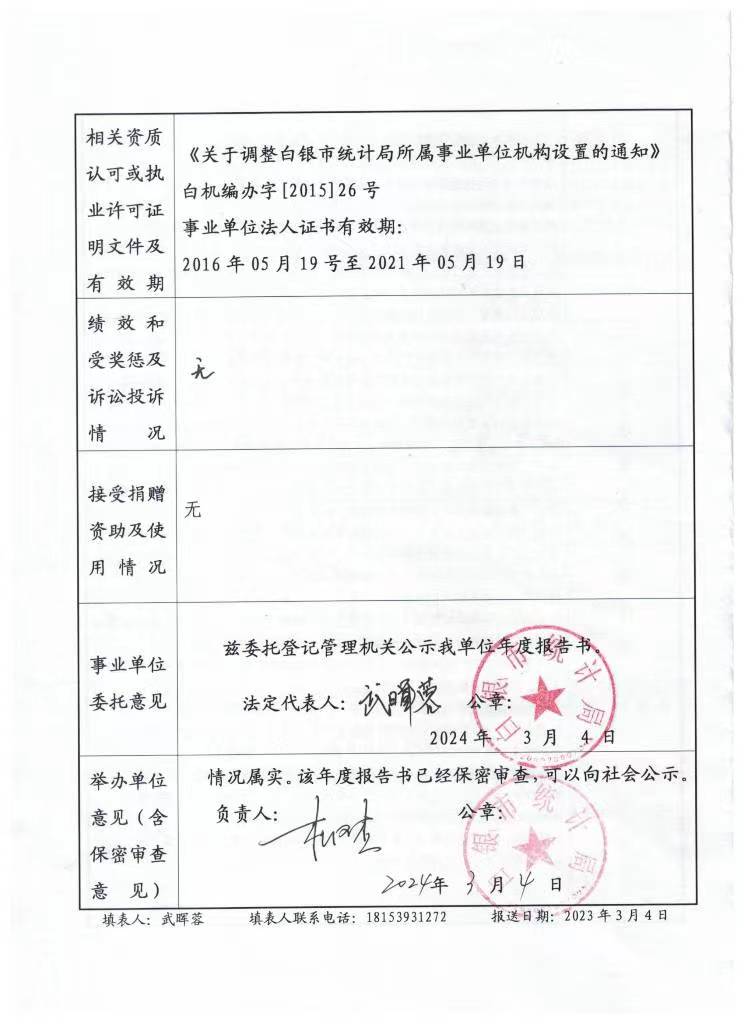 相关资质
认可或执
业许可证
明文件及
有效期
《关于调整白银市统计局所属事业单位机构设置的通知》
白机编办字[2015]26号
事业单位法人证书有效期：
2016年05月19号至2021年05月19日
绩效和
受奖惩及
诉讼投诉
情况
无
接受捐赠
资助及使
用情况
无
事业单位
委托意见
兹委托登记管理机关公示我单位年度报告书。
法定代表人：武晖蓉 公章：
2024年 3月 4日
白银市统计局
举办单位
意见（含
保密审查
意见）
情况属实。该年度报告书已经保密审查，可以向社会公示。
负责人： 公章：
2024年 3月 4日
白银市统计局
填表人：武晖蓉 填表人联系电话：18153931272 报送日期：2023年3月4日